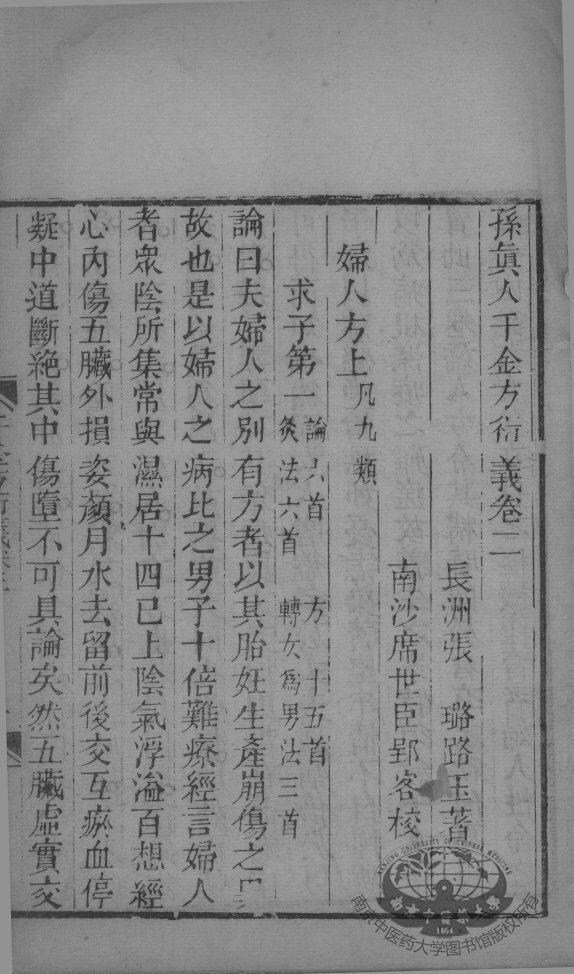 孫眞人千金方衍義卷二
長洲張　璐路玉著
南沙席世臣郢客校
婦人方上凡九類
求子第一 論六首　方十五首
灸法六首　轉女爲男法三首
論曰夫婦人之別有方者以其胎妊生產崩傷之
故也是以婦人之病比之男子十倍難療經言婦人
者衆陰所集常與濕居十四已上陰氣浮溢百想經
心內傷五臟外損姿顏月水去留前後交互瘀血停
凝中道斷絕其中傷墮不可具論矣然五臟虛實交
南京中医药大学图书馆版权所有
NANJING UNIVERSITY OF CHINESE MEDICINE
1954